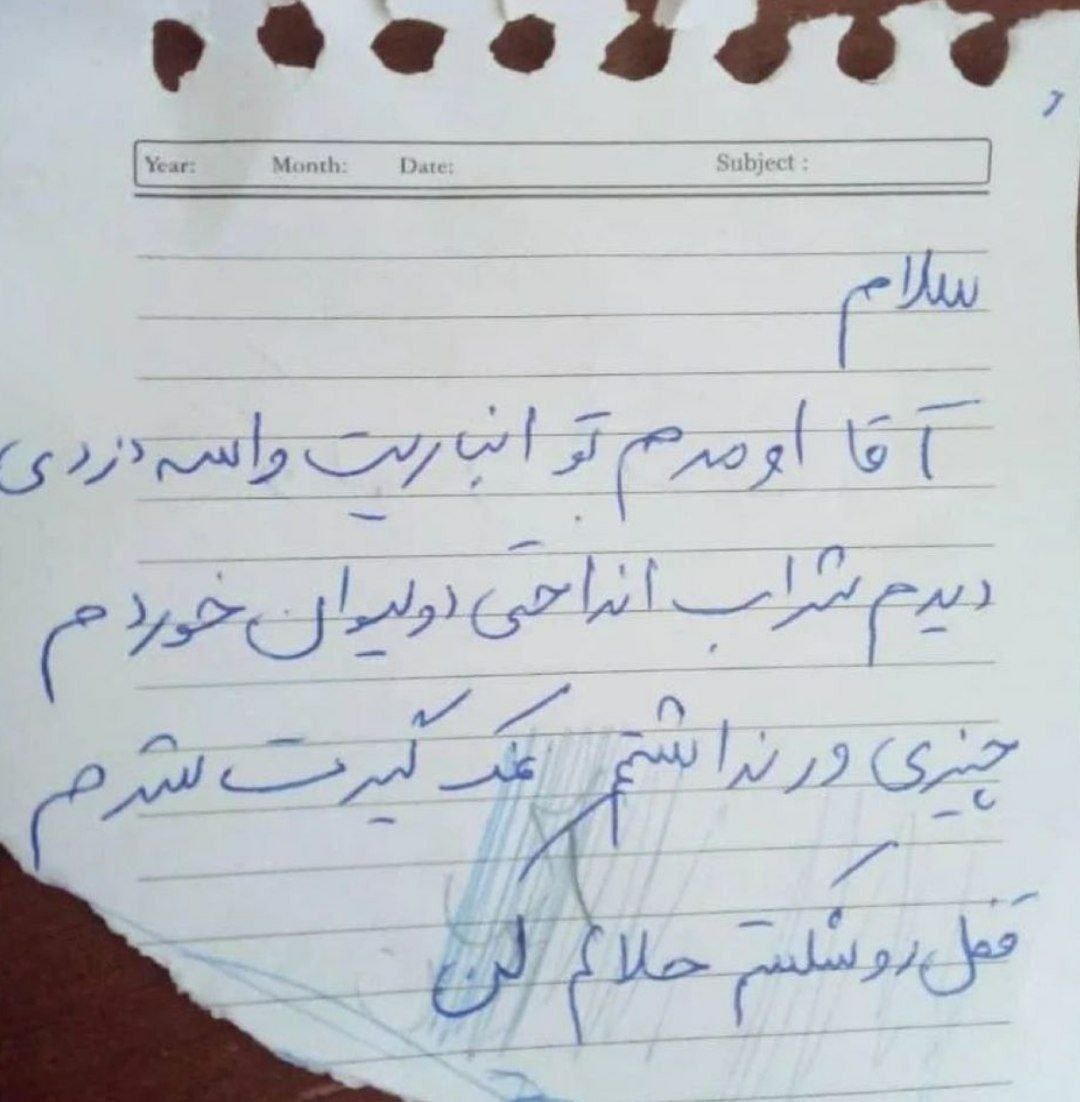 Year: Month: Date: Subject :
سلام
آقا اومدم تو انباریت واسه دزدی
دیدم شراب انداختی دو لیوان خوردم
چیزی ور نداشتم نمک گیرت شدم
قفل رو شکستم حلالم کن